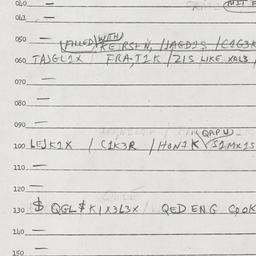 010
MIT
050
(FILLED) (WITH) KERSEN, / JAGD1S / C1G3R
060 TAJGL1X FRA,T1K / Z1S LIKE XAL3
070
080
090
(QAPU)
100 LEJK1X / C1K3R / HON1K S1MX1S
110
120
130 $ QGL $ K1X3L3X / QED ENG COOK
140
150